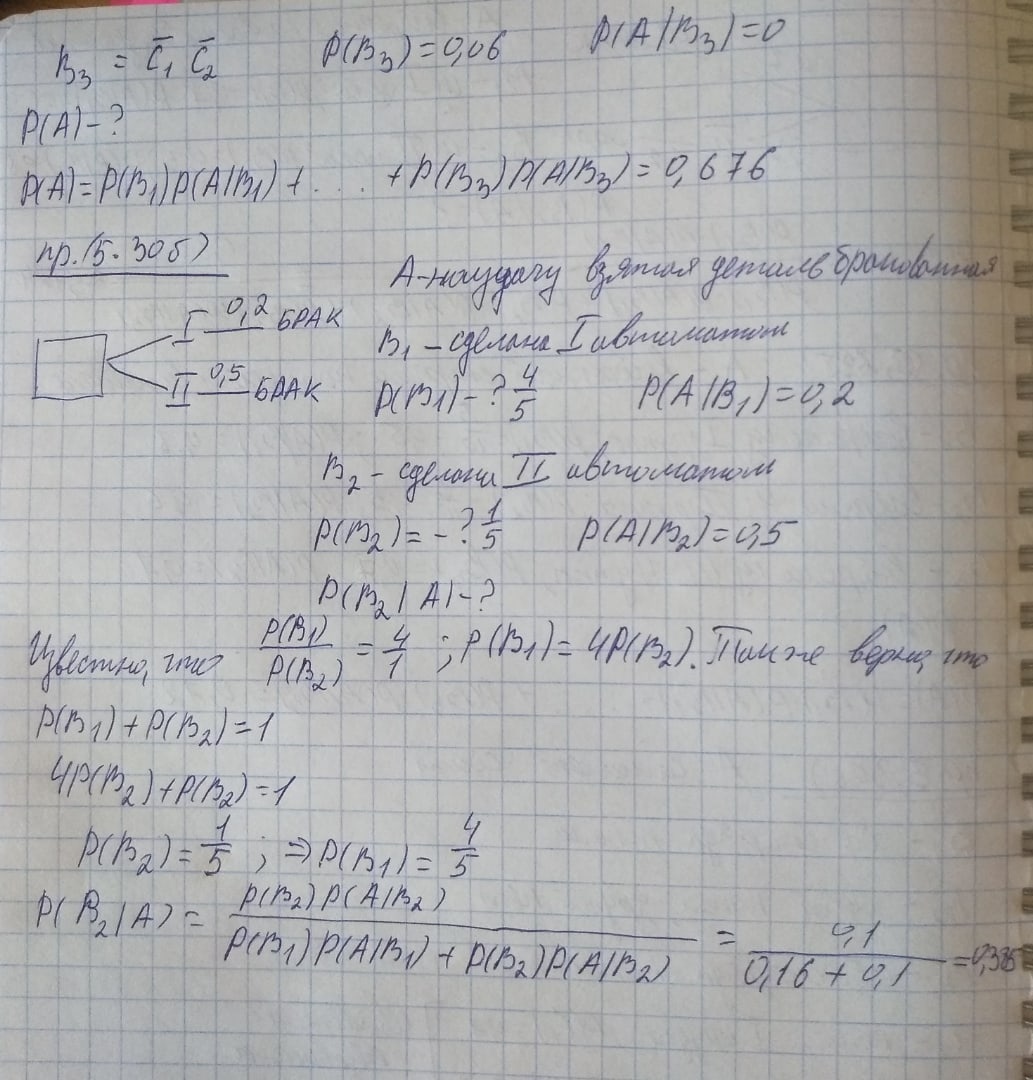 B₃ = C̄₁ C̄₂ P(B₃)=0,06 P(A|B₃)=0
P(A)-?
P(A)=P(B₁)P(A|B₁)+....+P(B₃)P(A|B₃)=0,676
пр.(5.30б)
А-наудачу взятая деталь бракованная
I 0,2 БРАК
II 0,5 БРАК
B₁ - сделана I автоматом
P(B₁)-? 4/5 P(A|B₁)=0,2
B₂ - сделана II автоматом
P(B₂)=-? 1/5 P(A|B₂)=0,5
P(B₂|A)-?
Известно, что P(B₁)/P(B₂) = 4/1 ; P(B₁)=4P(B₂). Также верно, что
P(B₁)+P(B₂)=1
4P(B₂)+P(B₂)=1
P(B₂)=1/5 ; ⇒P(B₁)=4/5
P(B₂|A) = P(B₂)P(A|B₂) / P(B₁)P(A|B₁)+P(B₂)P(A|B₂) = 0,1 / 0,16+0,1 =0,385